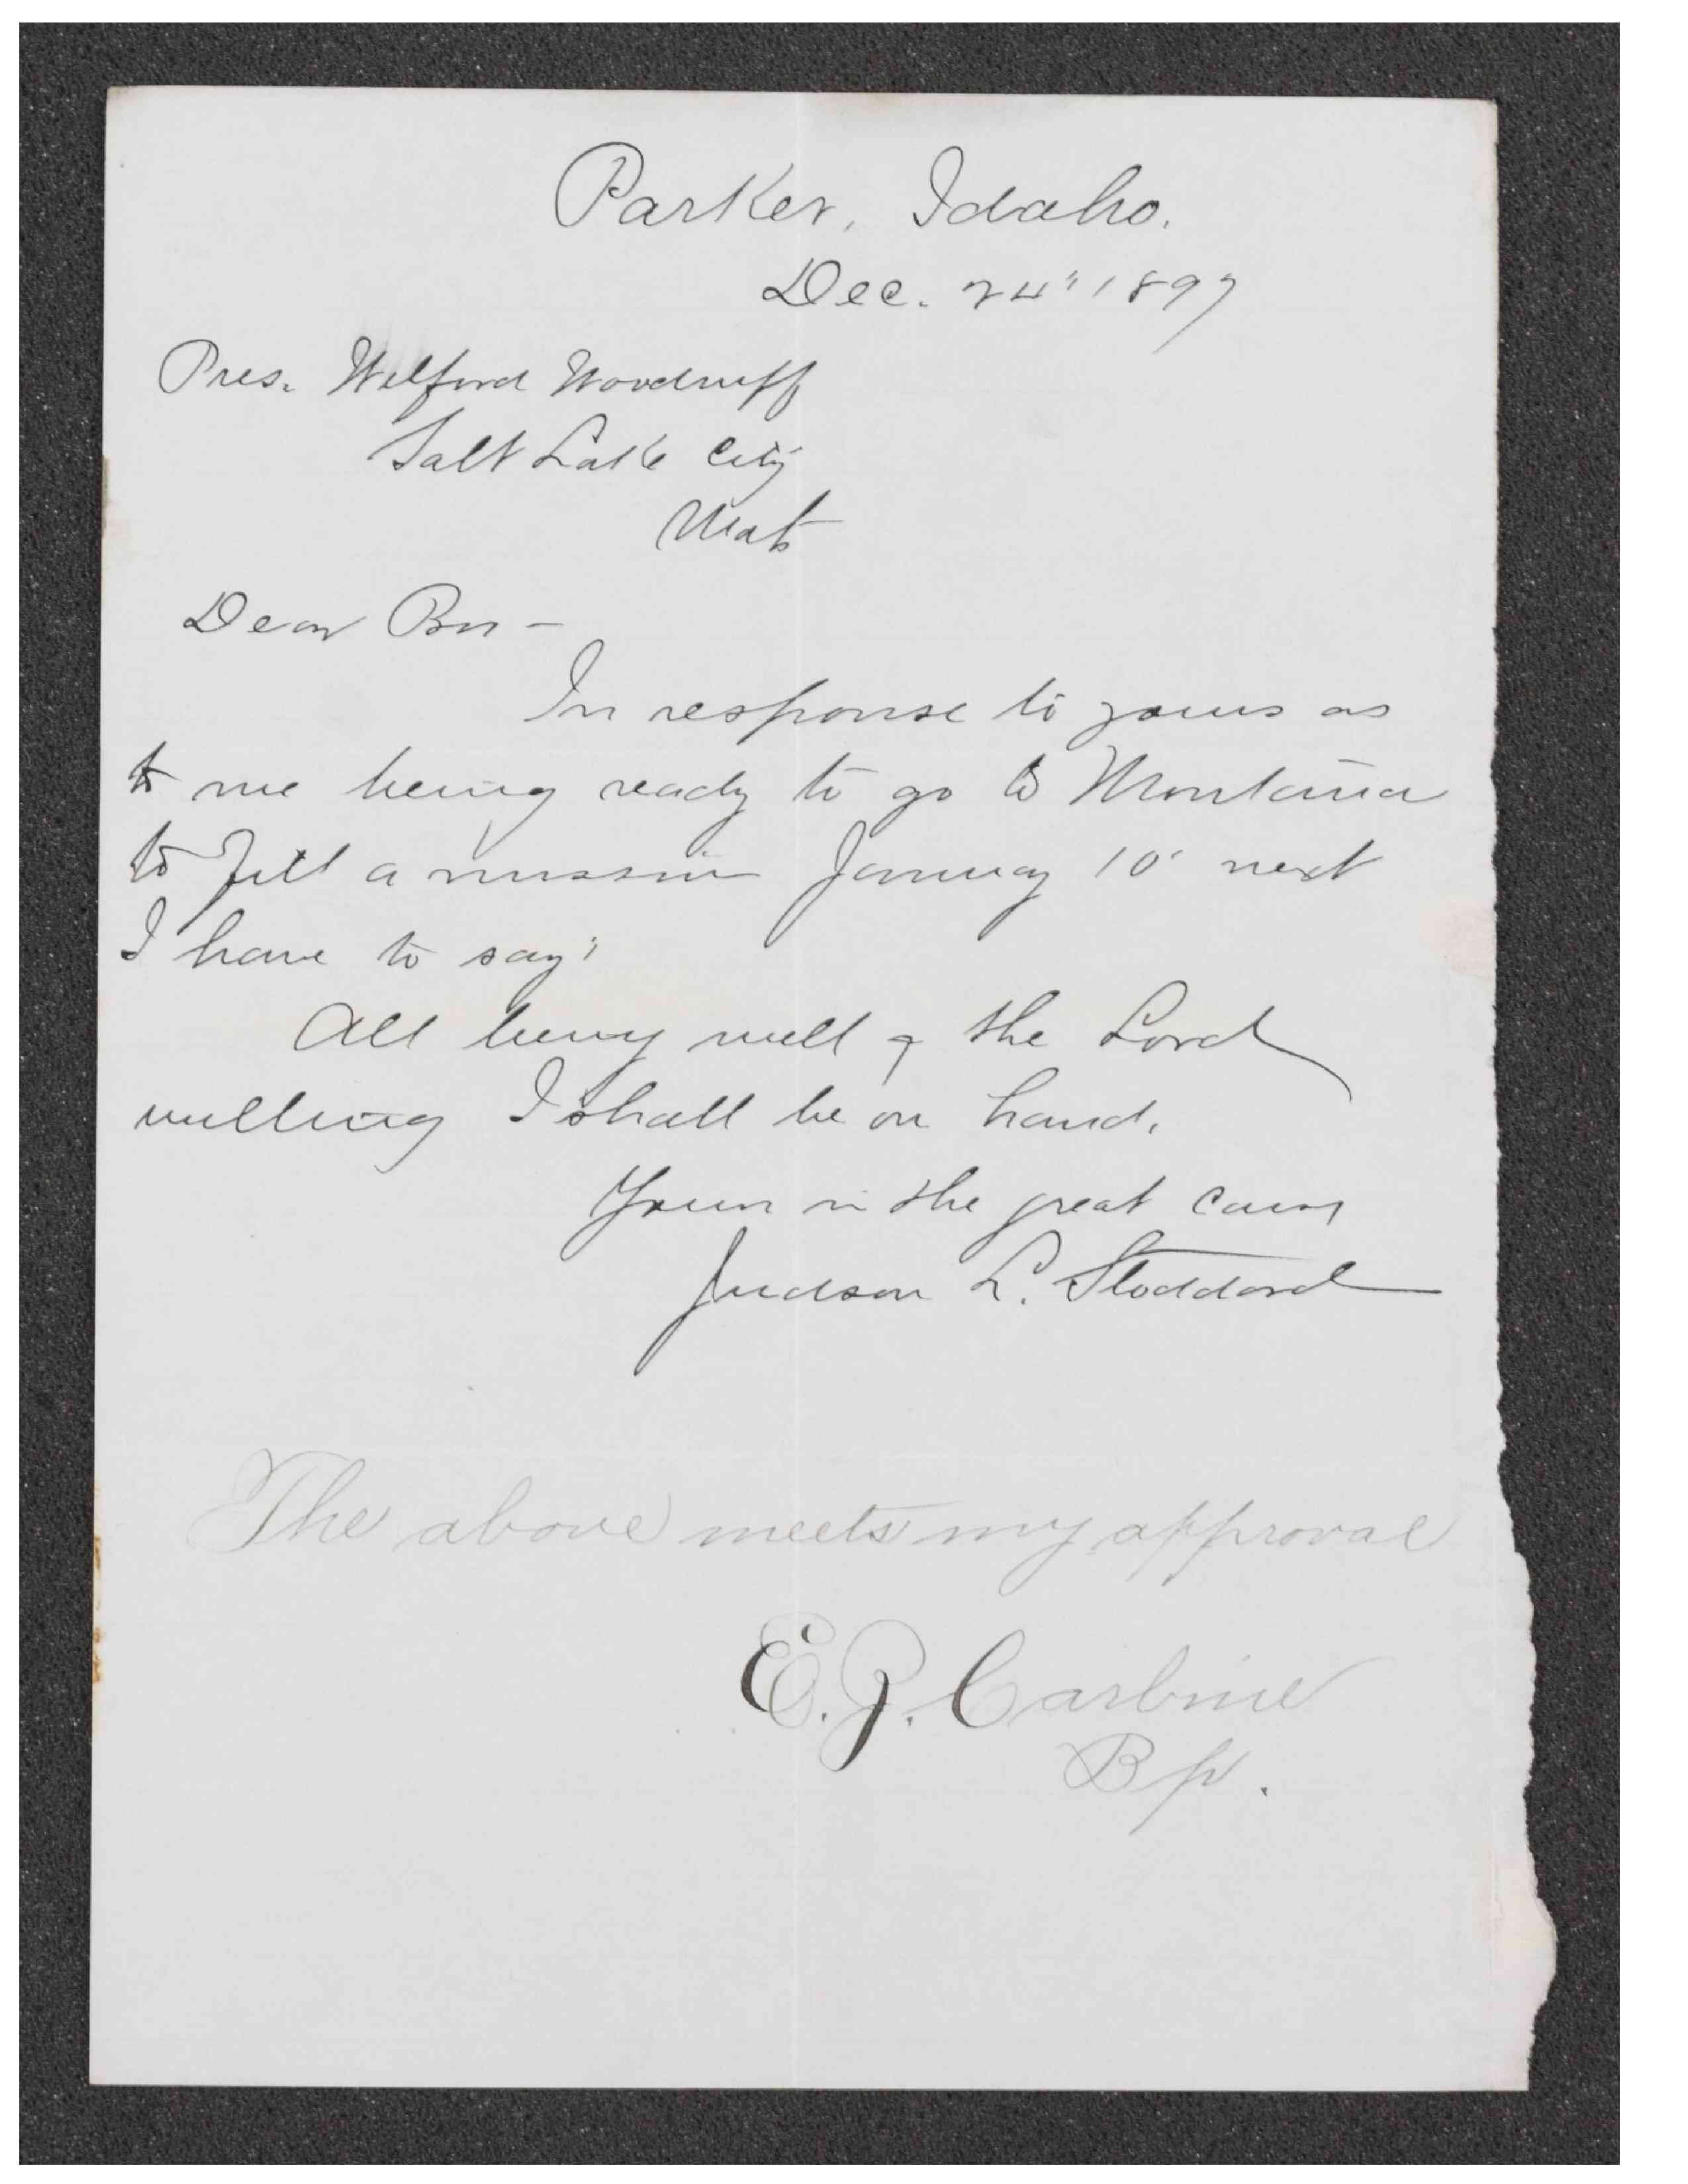 Parker, Idaho.
Dec. 24" 1897
Pres. Wilford Woodruff
Salt Lake City
Utah
Dear Bro -
In response to yours as
to me being ready to go to Montana
to fill a mission January 10' next
I have to say:
All being well & the Lord
willing I shall be on hand.
Yours in the great cause
Judson L. Stoddard
The above meets my approval
E. Z. Carbine
Bp.